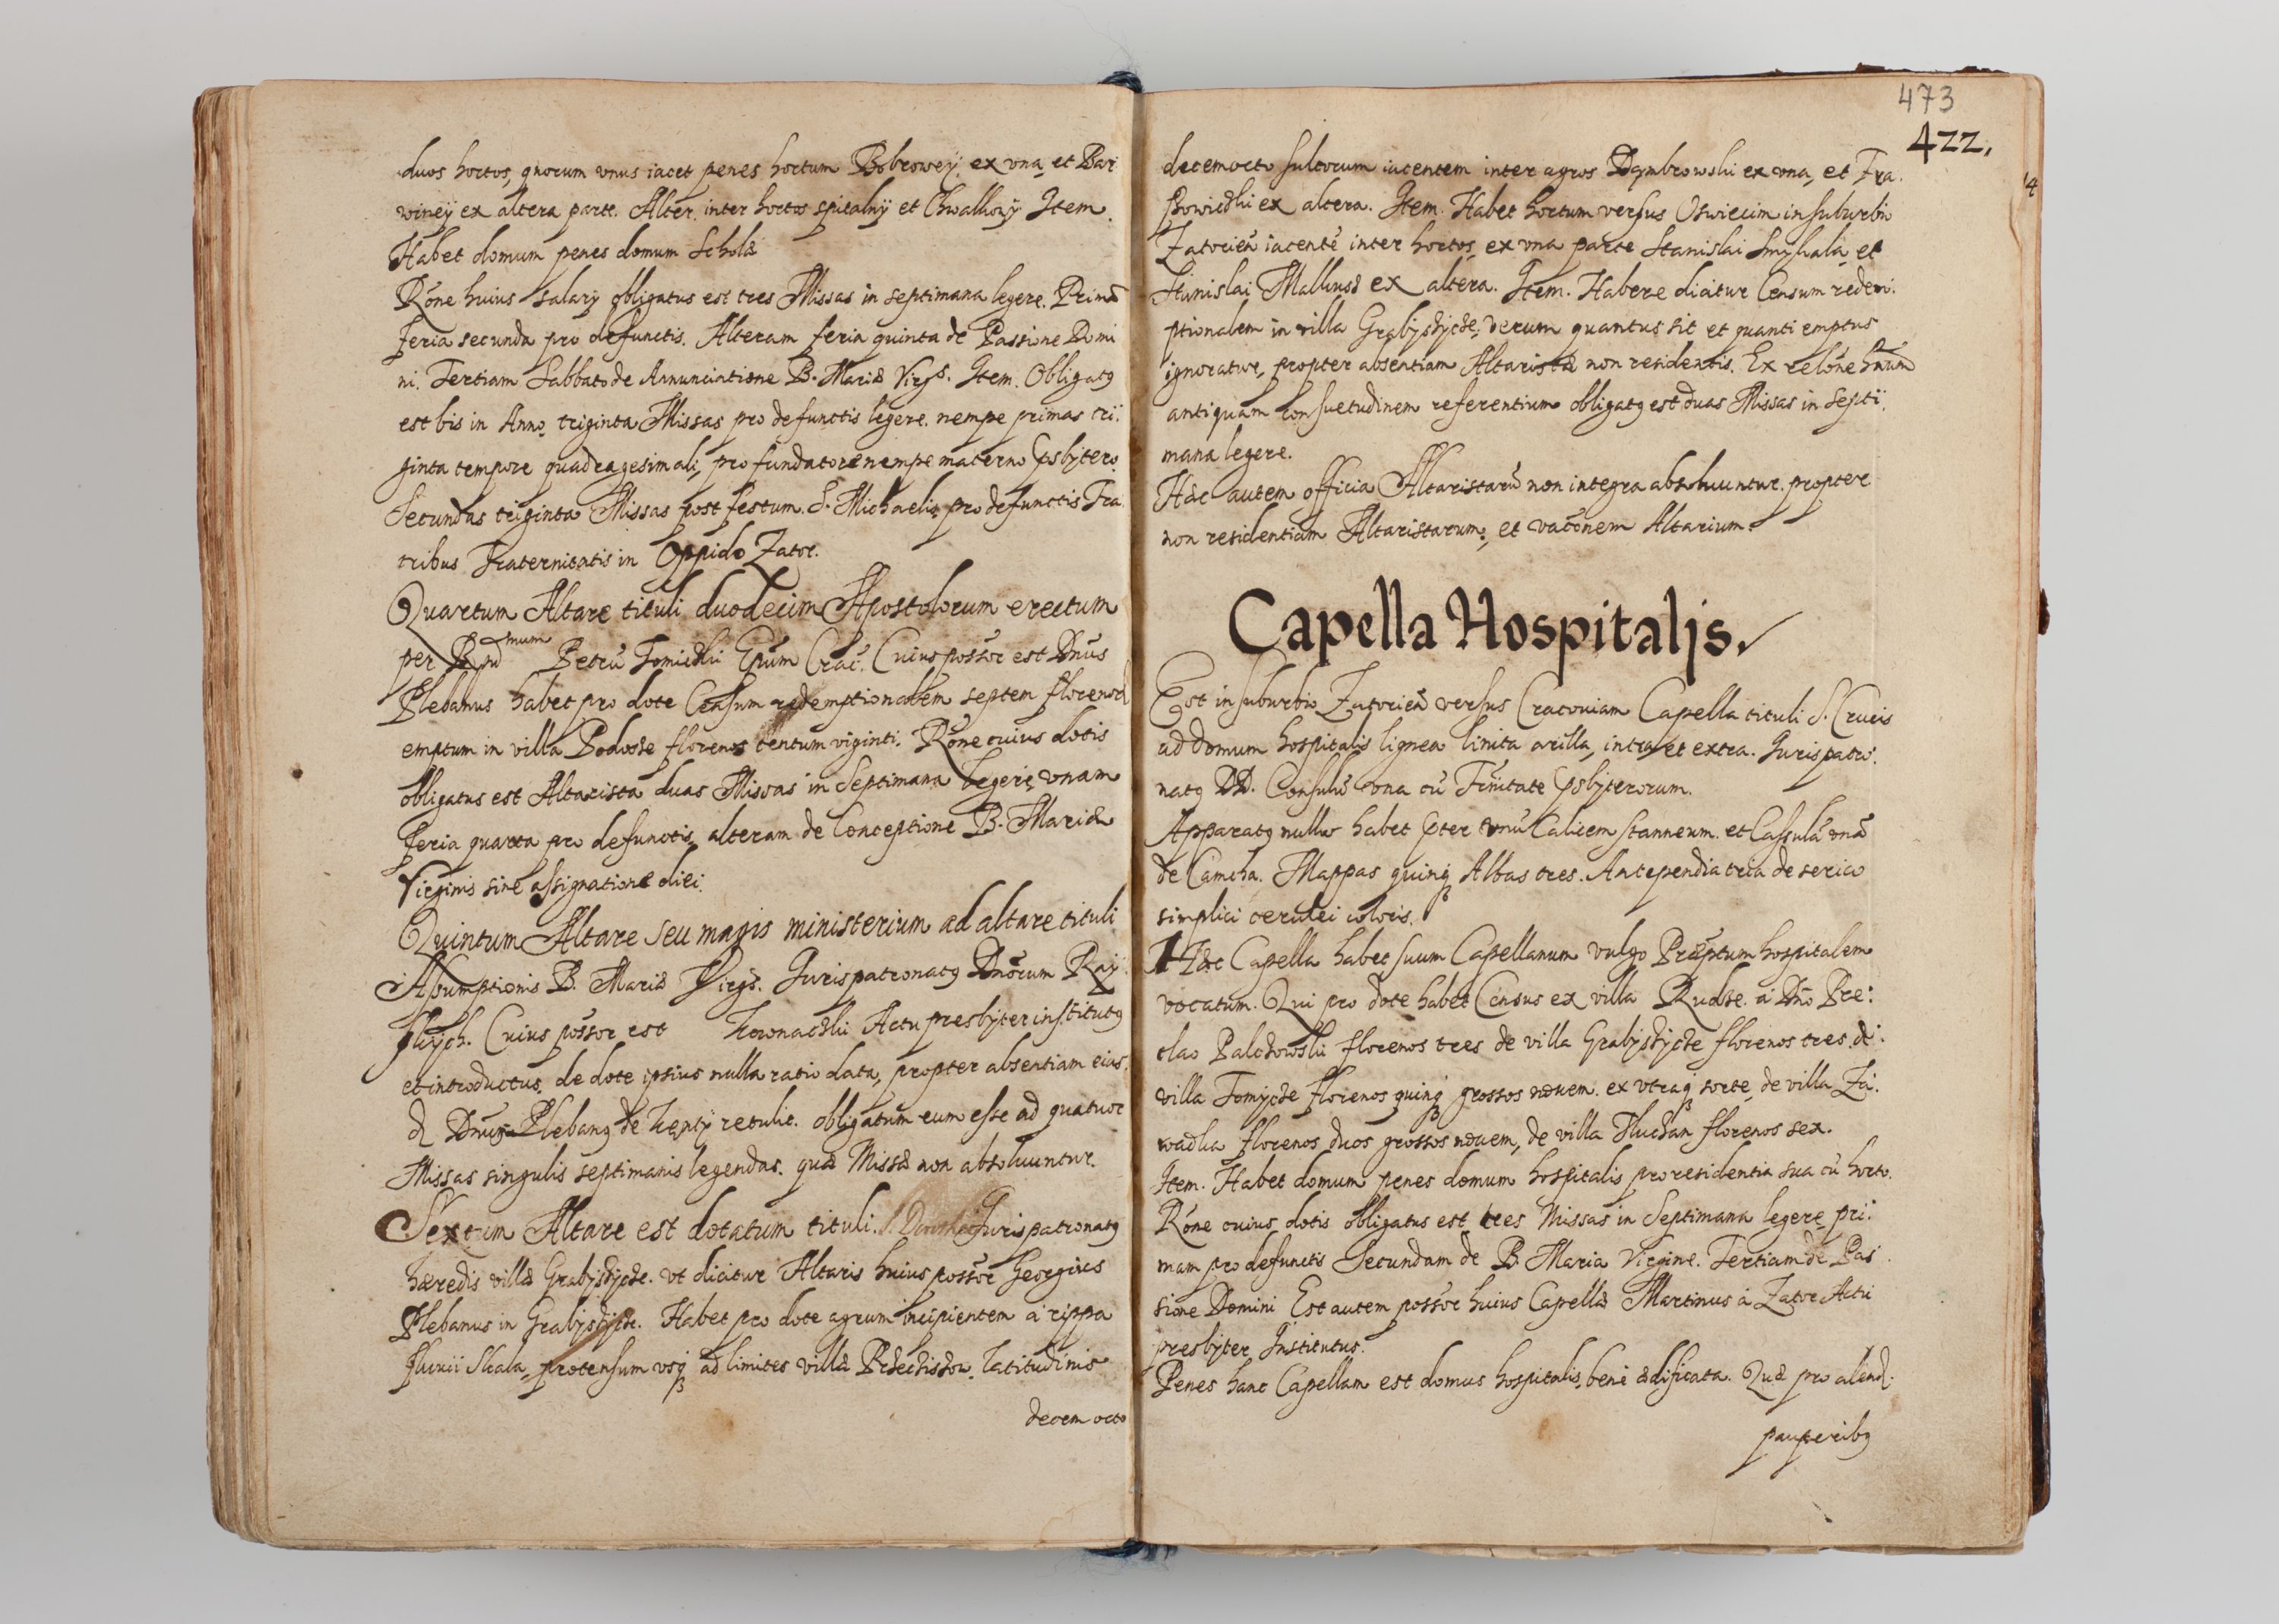 duos hortos, quorum unus iacet penes hortum Bobrowey ex una, et Bar
winey ex altera parte. Alter inter hortos spitalny et Chwalkowy Item.
Habet domum penes domum Scholæ
Rōne huius salarij obligatus est tres Missas in septimana legere. Primā
feria secunda pro defunctis. Alteram feria quinta de Passione Domi
ni. Tertiam Sabbato de Annunciatione B. Mariæ Virgs. Item. Obligatꝰ
est bis in Anno triginta Missas pro defunctis legere. nempe primas tri:
ginta tempore quadragesimali, pro fundatore nempe materno Psbytero
Secundas triginta Missas post festum S. Michaelis pro defunctis Fra
tribus Fraternitatis in Oppido Zator.
Quartum Altare tituli duodecim Apostolorum erectum
per Rnd mum Petrū Tomiczki Epum Crac. Cuius possōr est Dnus
Plebanus habet pro dote Censum redemptionalem septem florenos
emptum in villa Podolsze florenos centum viginti. Rōne cuius dotis
obligatus est Altarista duas Missas in Septimana legere, unam
feria quarta pro defunctis, alteram de Conceptione B. Mariæ
Virginis sine assignatione diei.
Quintum Altare seu magis ministerium ad altare tituli
Assumptionis B. Mariæ Virgs. Jurispatronatꝰ Dnōrum Ray
skych. Cuius possōr est Actu presbyter institutꝰ
et introductus, de dote ipsius nulla ratio data, propter absentiam eius.
Dnus Plebanꝰ de retulit. obligatum eum esse ad quatuor
Missas singulis septimanis legendas. quæ Missæ non absoluuntur.
Sextum Altare est dotatum tituli Jurispatronatꝰ
hæredis villæ Grabyszycze. ut dicitur Altaris huius possōr Georgius
Plebanus in Grabyszycze. Habet pro dote agrum incipientem a rippa
fluuii Skala, protensum usqꝫ ad limites villæ latitudinis
decem octo
473
422.
decemocto sulcorum iacentem inter agros Dąmbrowski ex una, et Fra
ex altera. Item. Habet hortum versus Oswiecim in suburbio
Zatorieñ iacentē inter hortos, ex una parte Stanislai et
Stanislai ex altera. Item. Habere dicitur Censum redem:
ptionalem in villa Grabyszycze, verum quantus sit et quanti emptus
ignoratur, propter absentiam Altaristæ non residentis. Ex relōne
antiquam Consuetudinem referentium obligatꝰ est duas Missas in Septi:
mana legere.
Hæc autem officia Altaristarū non integra absoluuntur. propter
non residentiam Altaristarum, et vacōnem Altarium.
Capella Hospitalis.
Est in suburbio Zatorieñ versus Cracouiam Capella tituli S. Crucis
ad domum hospitalis lignea linita arilla, intra et extra. Jurispatro:
natꝰ DD. Consulū una cū Frnitate Psbyterorum.
Apparatꝰ nullos habet pter unū Calicem stanneum. et Casulā unā
de Camcha. Mappas quinqꝫ Albas tres. Antependia tria de serico
simplici cerulei coloris.
Hæc Capella habet suum Capellanum vulgo Præptum hospitalem
vocatum. Qui pro dote habet Census ex villa Rudze. a Dño Pre:
clao Palczowski florenos tres de villa Grabyszycze florenos tres. de
villa Tomycze florenos quinqꝫ grossos nouem. ex utraqꝫ sorte, de villa Za:
wadka florenos duos grossos nouem, de villa Tluczan florenos sex.
Item. Habet domum penes domum hospitalis pro residentia sua cū horto.
Rōne cuius dotis obligatus est tres Missas in Septimana legere, pri:
mam pro defunctis Secundam de B. Maria Virgine. Tertiam de Pas
sione Domini Est autem possōr huius Capellæ Martinus a Zator Actu
presbyter Institutus.
Penes hanc Capellam est domus hospitalis bene ædificata. Quæ pro alend.
pauperibꝰ